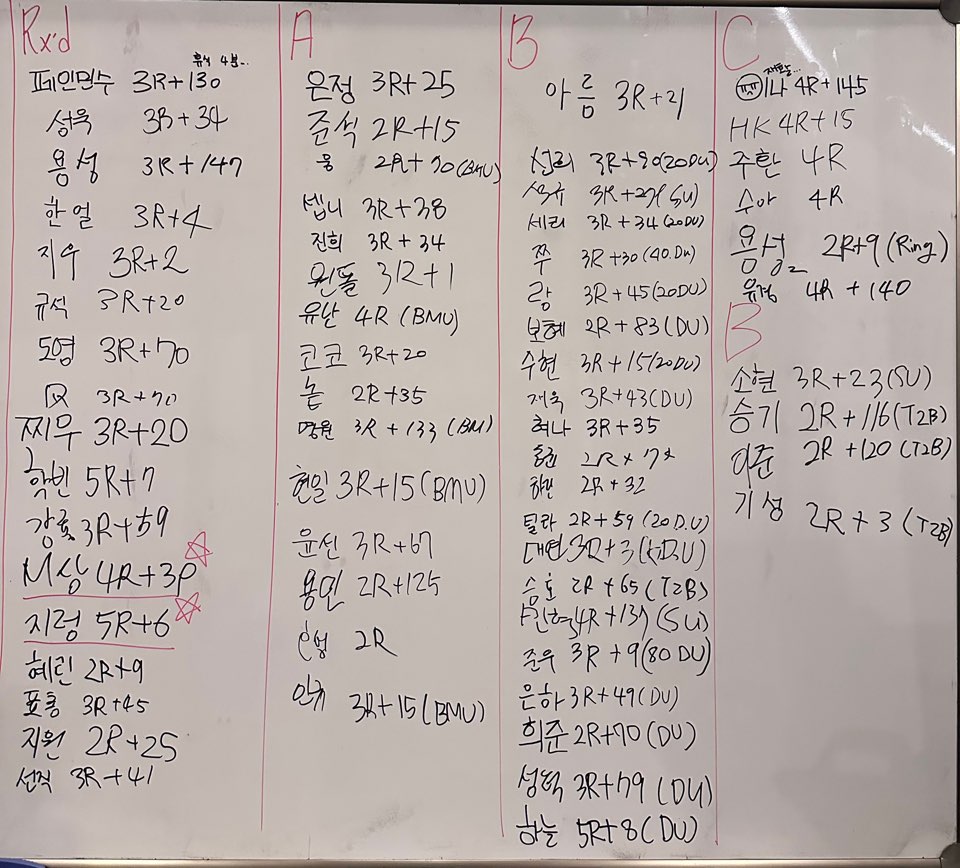 Rx'd
휴식 4분...
페인면수 3R+130
성욱 3R+34
용성 3R+147
한얼 3R+4
지우 3R+2
규석 3R+20
도영 3R+70
3R+70
찌우 3R+20
학빈 5R+7
강호 3R+59
M상 4R+39
지렁 5R+6
혜린 2R+9
포총 3R+45
지원 2R+25
선직 3R+41
A
은정 3R+25
준석 2R+15
(BMU)
셉니 3R+38
진희 3R+34
윈돌 3R+1
유난 4R (BMU)
코코 3R+20
눈 2R+35
명원 3R+133 (BM)
현일 3R+15(BMU)
윤선 3R+67
용민 2R+125
2R
3R+15(BMU)
B
아름 3R+21
3R+90(20DU)
(SU)
세리 3R+34 (20DU)
쭈 3R+30(40.DU)
랑 3R+45(20DU)
보혜 2R+83(DU)
수현 3R+15(20DU)
재욱 3R+43(DU)
혀나 3R+35
하빈 2R+32
틸라 2R+59 (20D.U)
대현 3R+3
승호 2R+65(T2B)
4R+137 (SU)
준우 3R+9(80DU)
은하 3R+49(DU)
희준 2R+70(DU)
성혁 3R+79 (DU)
하늘 5R+8(DU)
C
이나 4R+145
HK 4R+15
주환 4R
수아 4R
용성2 2R+9(Ring)
유정 4R+140
B
소현 3R+23(SU)
승기 2R+116(T2B)
이준 2R+120(T2B)
기성 2R+3(T2B)